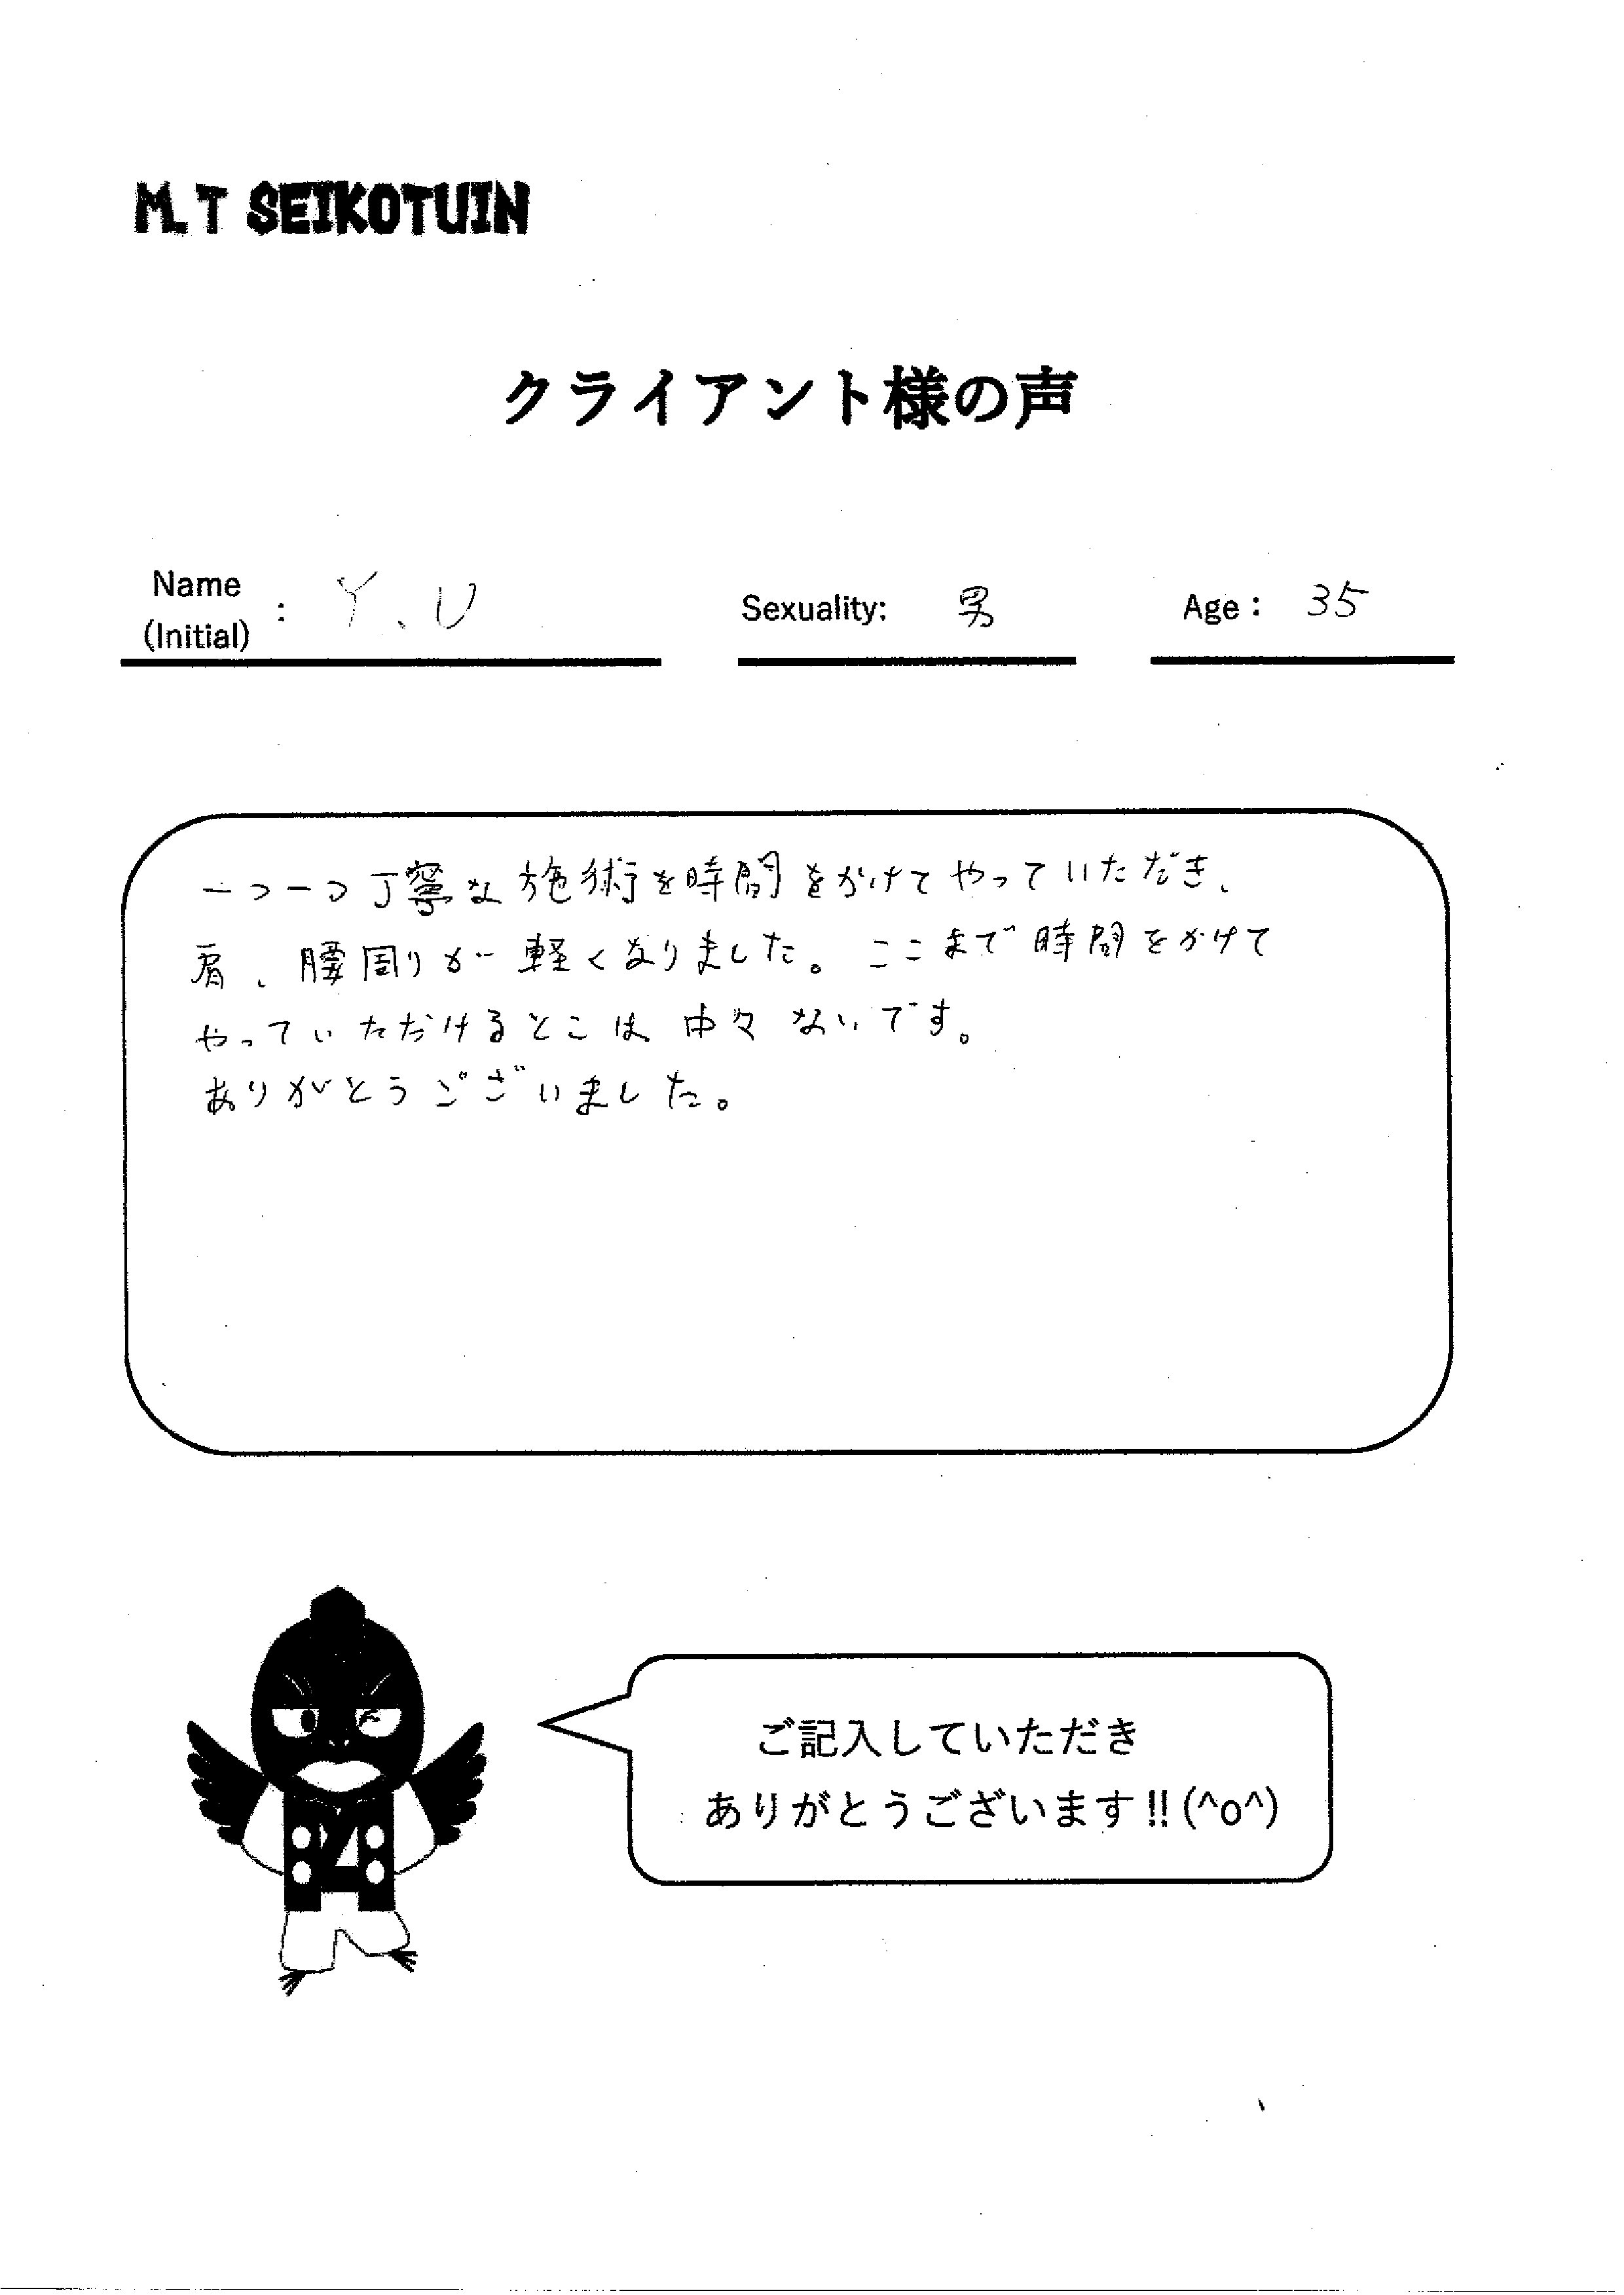 M.T SEIKOTUIN
クライアント様の声
Name
(Initial) : Y.U
Sexuality: 男
Age : 35
一つ一つ丁寧な施術を時間をかけてやっていただき、
肩、腰周りが軽くなりました。ここまで時間をかけて
やっていただけるとこは中々ないです。
ありがとうございました。
ご記入していただき
ありがとうございます!!(^o^)